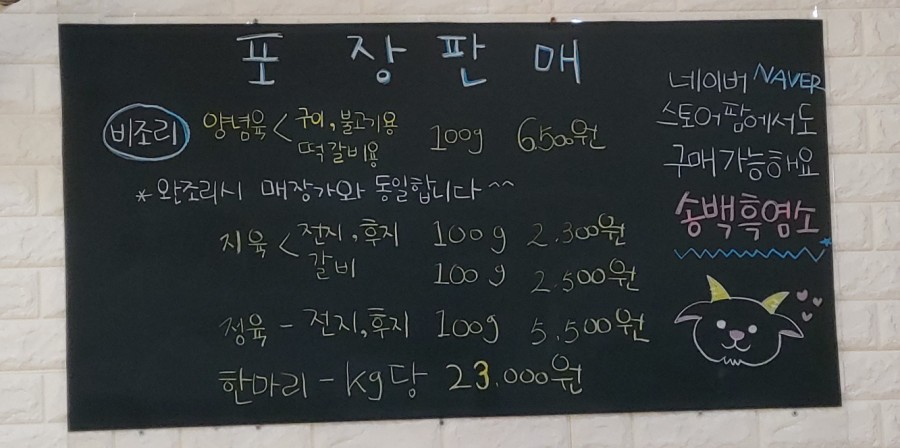 포장판매
비조리 양념육 < 구이, 불고기용 100g 6.500원
떡갈비용
*완조리시 매장가와 동일합니다^^
지육 < 전지, 후지 100g 2.300원
갈비 100g 2.500원
정육 - 전지, 후지 100g 5.500원
한마리 - kg당 23.000원
네이버 NAVER
스토어팜에서도
구매가능해요
송백흑염소